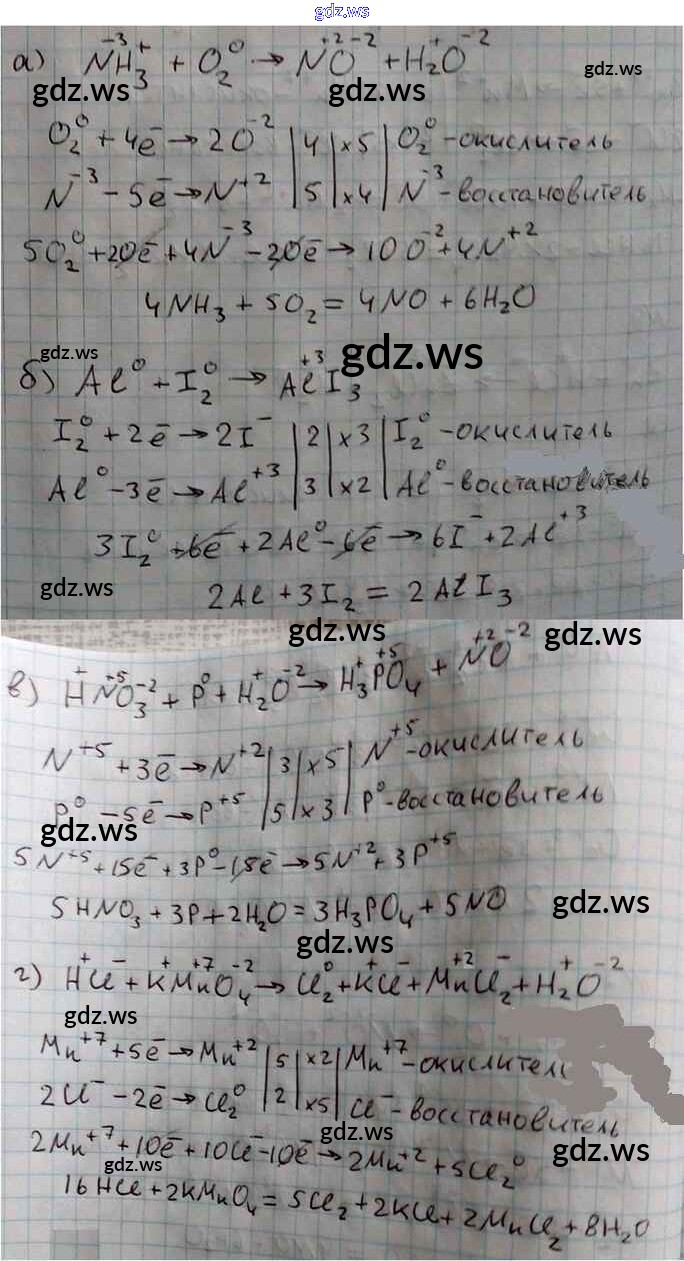 gdz.ws
а) N⁻³H₃⁺ + O₂⁰ → N⁺²O⁻² + H₂⁺O⁻²
gdz.ws
gdz.ws gdz.ws
O₂⁰ + 4ē → 2O⁻² | 4 | ×5 | O₂⁰ - окислитель
N⁻³ - 5ē → N⁺² | 5 | ×4 | N⁻³ - восстановитель
5O₂⁰ + 20ē + 4N⁻³ - 20ē → 10O⁻² + 4N⁺²
4NH₃ + 5O₂ = 4NO + 6H₂O
gdz.ws gdz.ws
б) Al⁰ + I₂⁰ → Al⁺³I₃
I₂⁰ + 2ē → 2I⁻ | 2 | ×3 | I₂⁰ - окислитель
Al⁰ - 3ē → Al⁺³ | 3 | ×2 | Al⁰ - восстановитель
3I₂⁰ + 6ē + 2Al⁰ - 6ē → 6I⁻ + 2Al⁺³
gdz.ws
2Al + 3I₂ = 2AlI₃
gdz.ws gdz.ws
в) H⁺N⁺⁵O₃⁻² + P⁰ + H₂⁺O⁻² → H₃⁺P⁺⁵O₄ + N⁺²O⁻²
N⁺⁵ + 3ē → N⁺² | 3 | ×5 | N⁺⁵ - окислитель
P⁰ - 5ē → P⁺⁵ | 5 | ×3 | P⁰ - восстановитель
gdz.ws
5N⁺⁵ + 15ē + 3P⁰ - 15ē → 5N⁺² + 3P⁺⁵
5HNO₃ + 3P + 2H₂O = 3H₃PO₄ + 5NO
gdz.ws
gdz.ws
г) H⁺Cl⁻ + K⁺Mn⁺⁷O₄⁻² → Cl₂⁰ + K⁺Cl⁻ + Mn⁺²Cl₂⁻ + H₂⁺O⁻²
gdz.ws
Mn⁺⁷ + 5ē → Mn⁺² | 5 | ×2 | Mn⁺⁷ - окислитель
2Cl⁻ - 2ē → Cl₂⁰ | 2 | ×5 | Cl⁻ - восстановитель
gdz.ws
2Mn⁺⁷ + 10ē + 10Cl⁻ - 10ē → 2Mn⁺² + 5Cl₂⁰
gdz.ws gdz.ws
16HCl + 2KMnO₄ = 5Cl₂ + 2KCl + 2MnCl₂ + 8H₂O